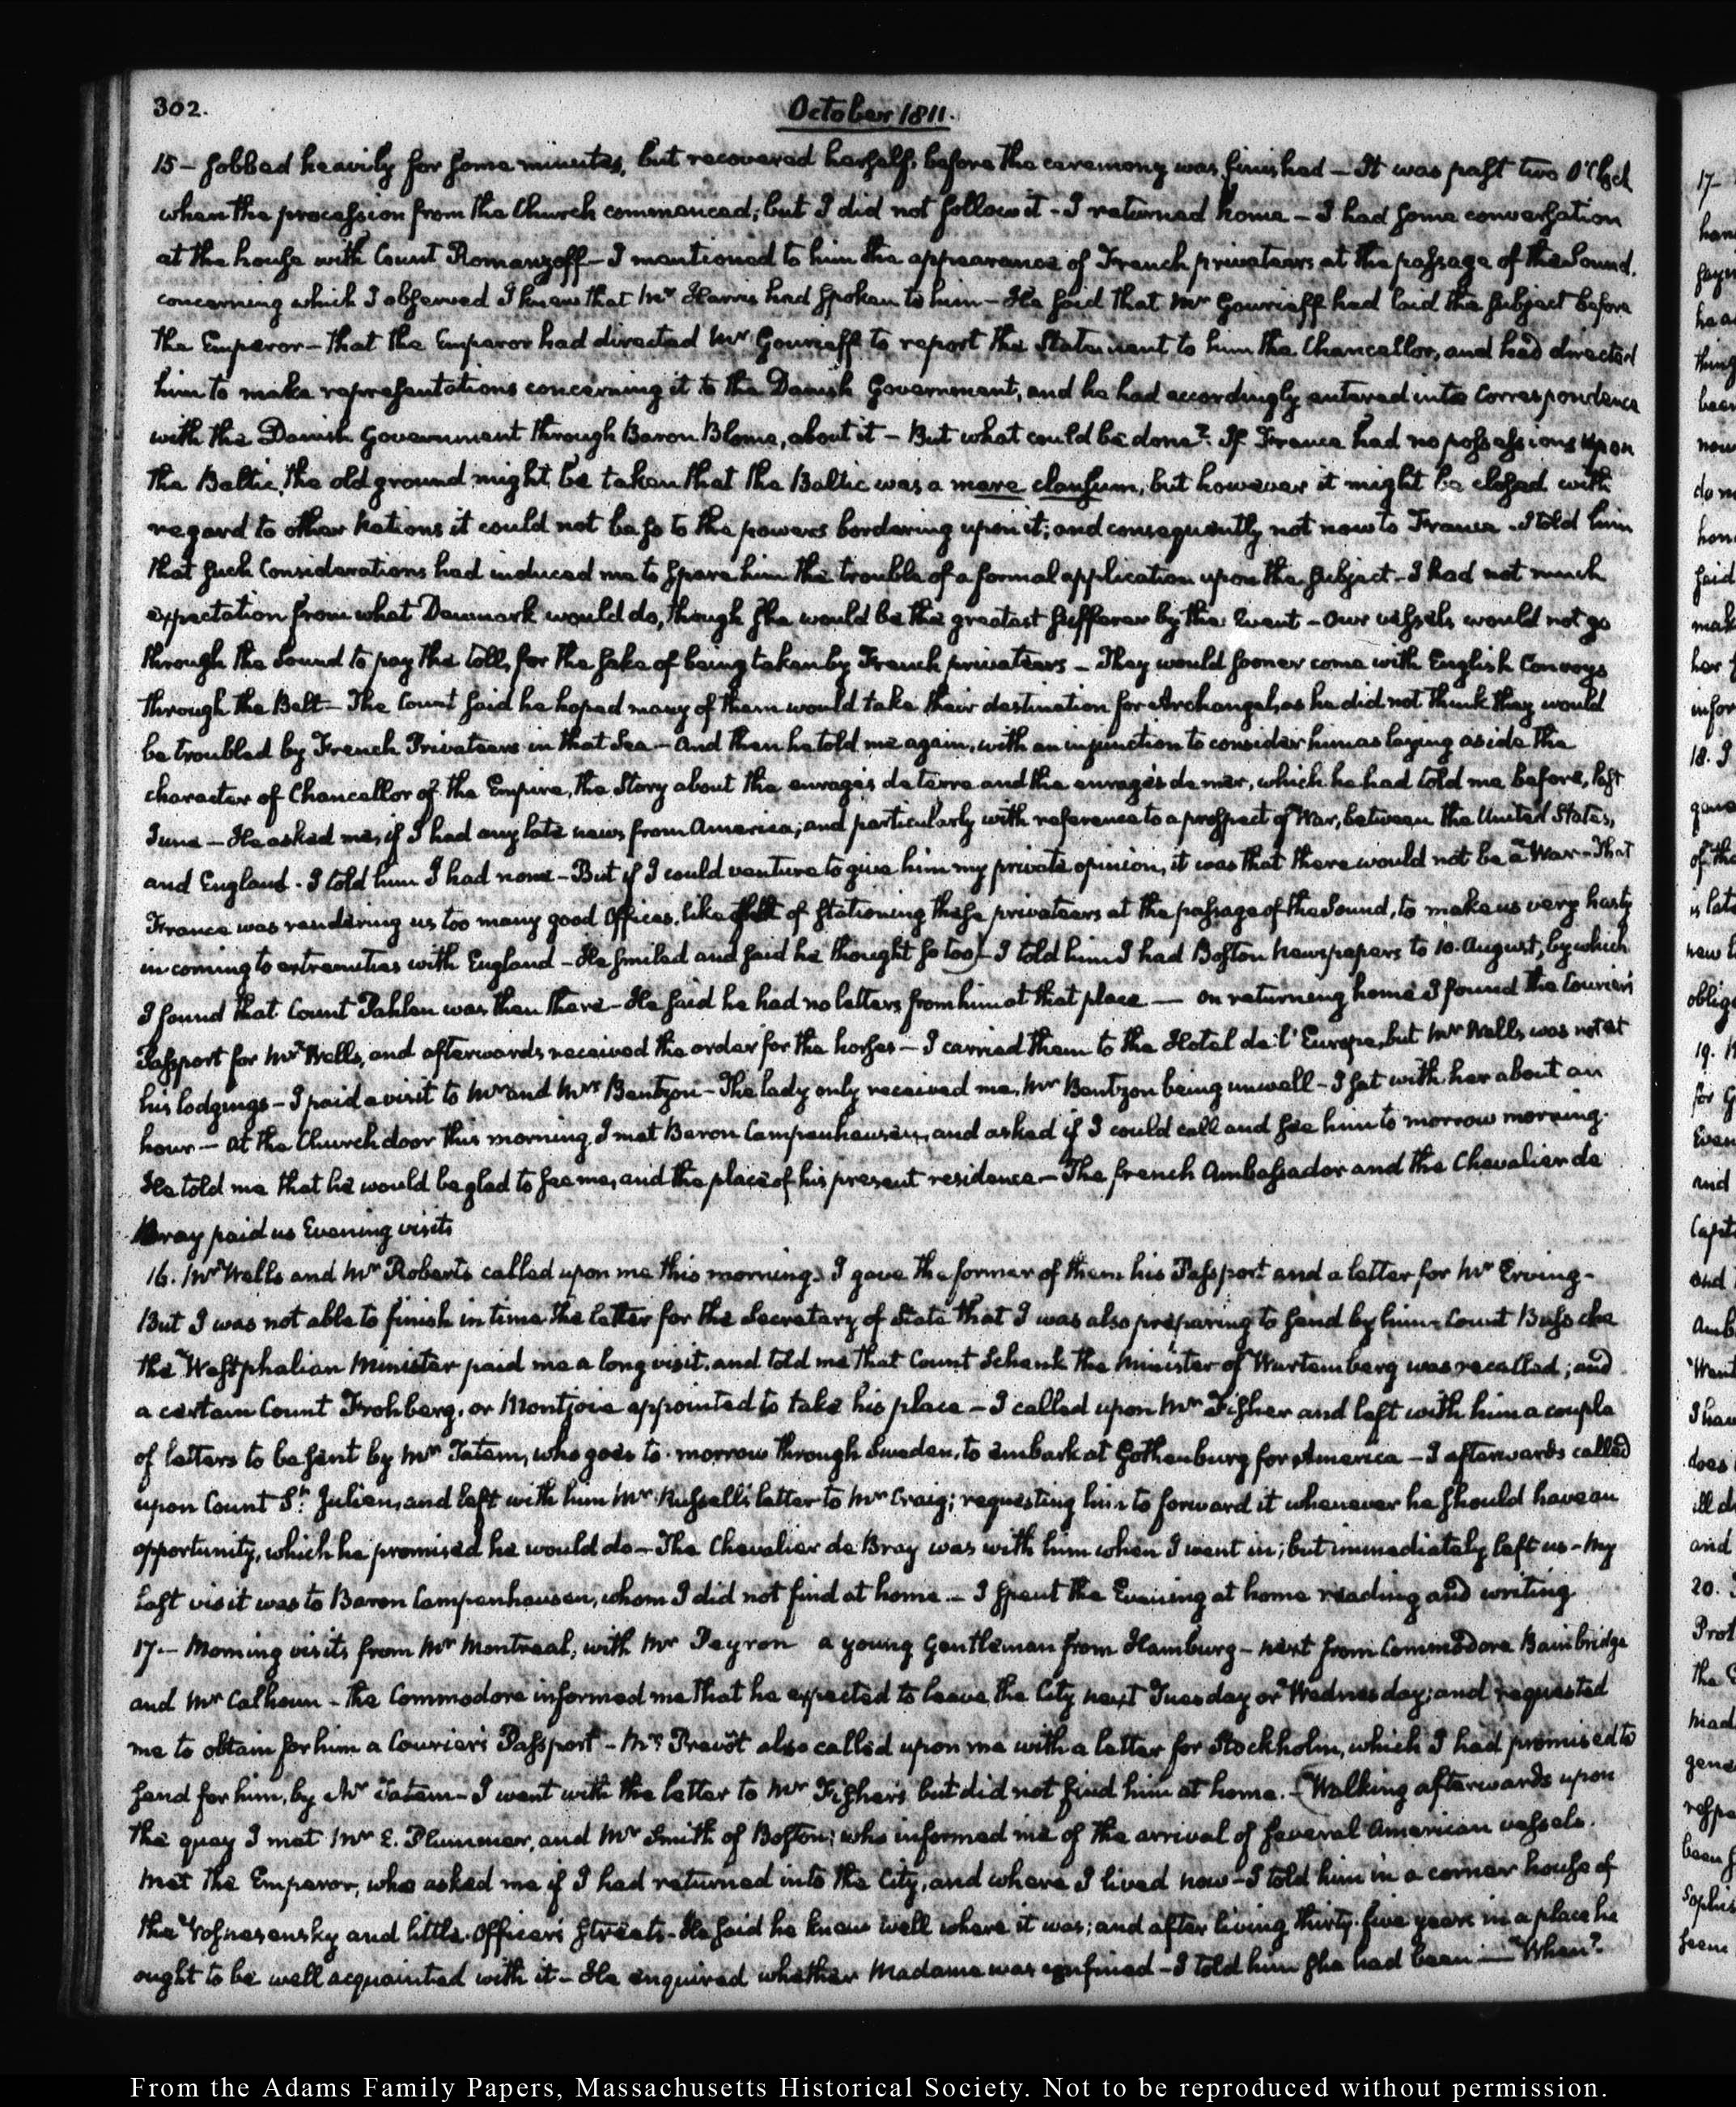 302.
October 1811.
15 - sobbed heavily for some minutes, but recovered herself, before the ceremony was finished - It was past two O'Clock
when the procession from the Church commenced; but I did not follow it - I returned home - I had some conversation
at the house with Count Romanzoff - I mentioned to him the appearance of French privateers at the passage of the Sound,
concerning which I observed I knew that Mr Harris had spoken to him - He said that Mr Gourieff had laid the subject before
the Emperor - that the Emperor had directed Mr Gourieff to report the Statement to him the Chancellor, and had directed
him to make representations concerning it to the Danish Government, and he had accordingly entered into Correspondence
with the Danish Government through Baron Blome, about it - But what could be done? If France had no possessions upon
the Baltic, the old ground might be taken that the Baltic was a mare clausum, but however it might be closed with
regard to other Nations it could not be so to the powers bordering upon it; and consequently not now to France - I told him
that such Considerations had induced me to spare him the trouble of a formal application upon the subject - I had not much
expectation from what Denmark would do, though she would be the greatest sufferer by the Event - Our vessels would not go
through the Sound to pay the tolls, for the sake of being taken by French privateers - They would sooner come with English Convoys
through the Belt - The Count said he hoped many of them would take their destination for Archangel, as he did not think they would
be troubled by French Privateers in that Sea - And then he told me again, with an injunction to consider him as laying aside the
character of Chancellor of the Empire, the Story about the enragés de terre and the enragés de mer, which he had told me before, last
June - He asked me, if I had any late news from America; and particularly with reference to a prospect of War, between the United States,
and England. I told him I had none - But if I could venture to give him my private opinion, it was that there would not be a War - That
France was rendering us too many good Offices, like that of stationing these privateers at the passage of the Sound, to make us very hasty
in coming to extremities with England - He smiled and said he thought so too) - I told him I had Boston Newspapers to 10. August, by which
I found that Count Pahlen was then there - He said he had no letters from him at that place - On returning home I found the Courier's
Passport for Mr Wells, and afterwards received the order for the horses - I carried them to the Hotel de l'Europe, but Mr Wells was not at
his lodgings - I paid a visit to Mr and Mrs Bentzon - The lady only received me, Mr Bentzon being unwell - I sat with her about an
hour - At the Church door this morning, I met Baron Campenhausen, and asked if I could call and see him to morrow morning.
He told me that he would be glad to see me, and the place of his present residence - The French Ambassador and the Chevalier de
Bray paid us Evening visits
16. Mr Wells and Mr Roberts called upon me this morning. I gave the former of them his Passport and a letter for Mr Erving -
But I was not able to finish in time the letter for the Secretary of State that I was also preparing to send by him - Count Bussche
the Westphalian Minister paid me a long visit, and told me that Count Schenk the Minister of Wurtemberg was recalled; and
a certain Count Frohberg, or Montjoie appointed to take his place - I called upon Mr Fisher and left with him a couple
of letters to be sent by Mr Tatem, who goes to-morrow through Sweden, to embark at Gothenburg for America - I afterwards called
upon Count St Julien, and left with him Mr Russell's letter to Mr Craig; requesting him to forward it whenever he should have an
opportunity, which he promised he would do - The Chevalier de Bray was with him when I went in; but immediately left us - My
last visit was to Baron Campenhausen, whom I did not find at home - I spent the Evening at home reading and writing
17 - Morning visits from Mr Montreal, with Mr Peyron a young Gentleman from Hamburg - next from Commodore Bainbridge
and Mr Calhoun - the Commodore informed me that he expected to leave the City next Tuesday or Wednesday; and requested
me to obtain for him a Courier's Passport - Mr Prevôt also called upon me with a letter for Stockholm, which I had promised to
send for him, by Mr Tatem - I went with the letter to Mr Fisher's but did not find him at home. - (Walking afterwards upon
the quay I met Mr E. Plummer, and Mr Smith of Boston; who informed me of the arrival of several American vessels.
Met the Emperor, who asked me if I had returned into the City, and where I lived now - I told him in a corner house of
the Vosnesensky and little Officers Streets - He said he knew well where it was; and after living thirty-five years in a place he
ought to be well acquainted with it - He enquired whether Madame was confined - I told him she had been - "When?
From the Adams Family Papers, Massachusetts Historical Society. Not to be reproduced without permission.